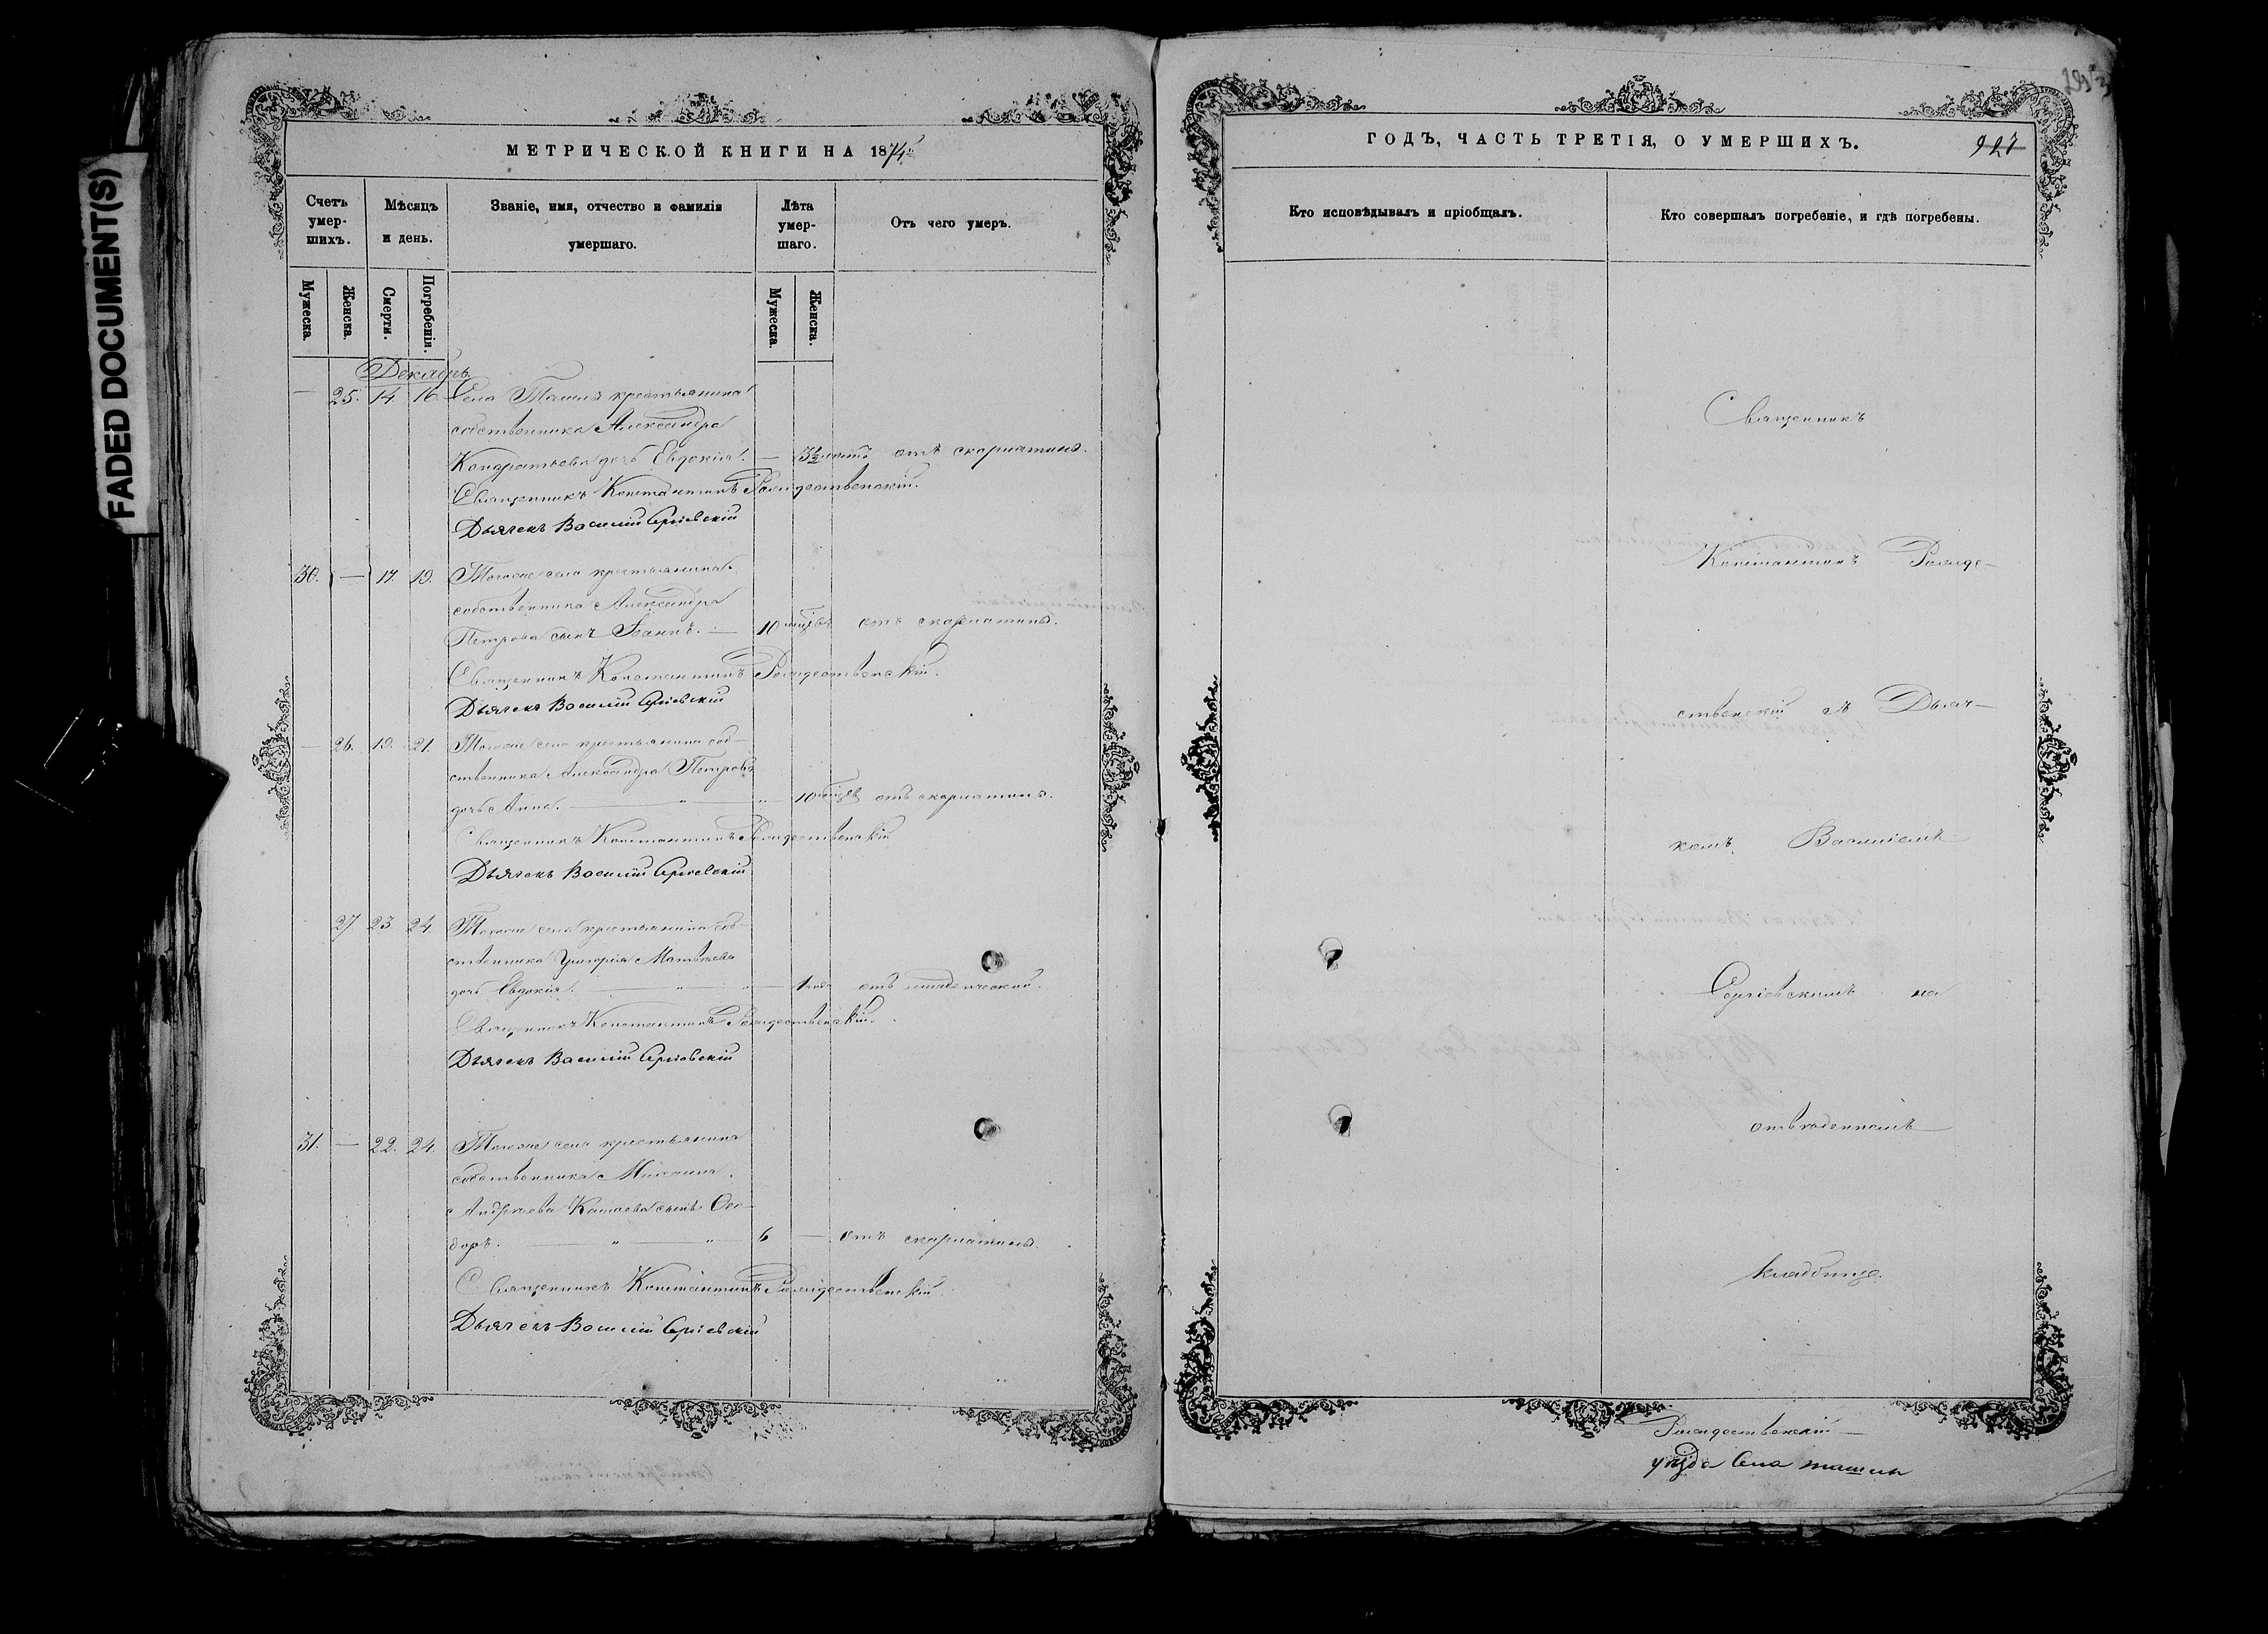 FADED DOCUMENT(S)
МЕТРИЧЕСКОЙ КНИГИ НА 1874
Счетъ умер-шихъ.
Мѣсяцъ и день.
Званіе, имя, отчество и фамилія умершаго.
Лѣта умер-шаго.
Отъ чего умеръ.
Мужеска.
Женска.
Смерти.
Погребенія.
Мужеска.
Женска.
Декабрь.
— 25. 14. 16. Села Ташлы крестьянина
собственника Александра
Кондратьева дочь Евдокія. — 3½ лѣтъ отъ скарлатины.
Священникъ Константинъ Рождественскій.
Дьячекъ Василій Сергіевскій
30. — 17. 19. Тогоже села крестьянина
собственника Александра
Петрова сынъ Іоаннъ. — 10 отъ скарлатины.
Священникъ Константинъ Рождественскій.
Дьячекъ Василій Сергіевскій
— 26. 19. 21. Тогоже села крестьянина соб-
ственника Александра Петрова
дочь Анна. — " — " — 10 отъ скарлатины.
Священникъ Константинъ Рождественскій
Дьячекъ Василій Сергіевскій
27 23. 24. Тогоже села крестьянина соб-
ственника Григорія Матвѣева
дочь Евдокія. — " — " — 1 года отъ младенческой.
Священникъ Константинъ Рождественскій.
Дьячекъ Василій Сергіевскій
31. — 22. 24. Тогоже села крестьянина
собственника Михаила
Андреева сынъ Ѳео-
доръ. — " — " — 6 — отъ скарлатины.
Священникъ Константинъ Рождественскій.
Дьячекъ Василій Сергіевскій
ГОДЪ, ЧАСТЬ ТРЕТІЯ, О УМЕРШИХЪ.
927
Кто исповѣдывалъ и пріобщалъ.
Кто совершалъ погребеніе, и гдѣ погребены.
Священникъ
Константинъ Рожде-
ственскій съ Дьяч-
комъ Василіемъ
Сергіевскимъ на
отведенномъ
кладбище.
Рождественскій
уѣзда Села Ташлы